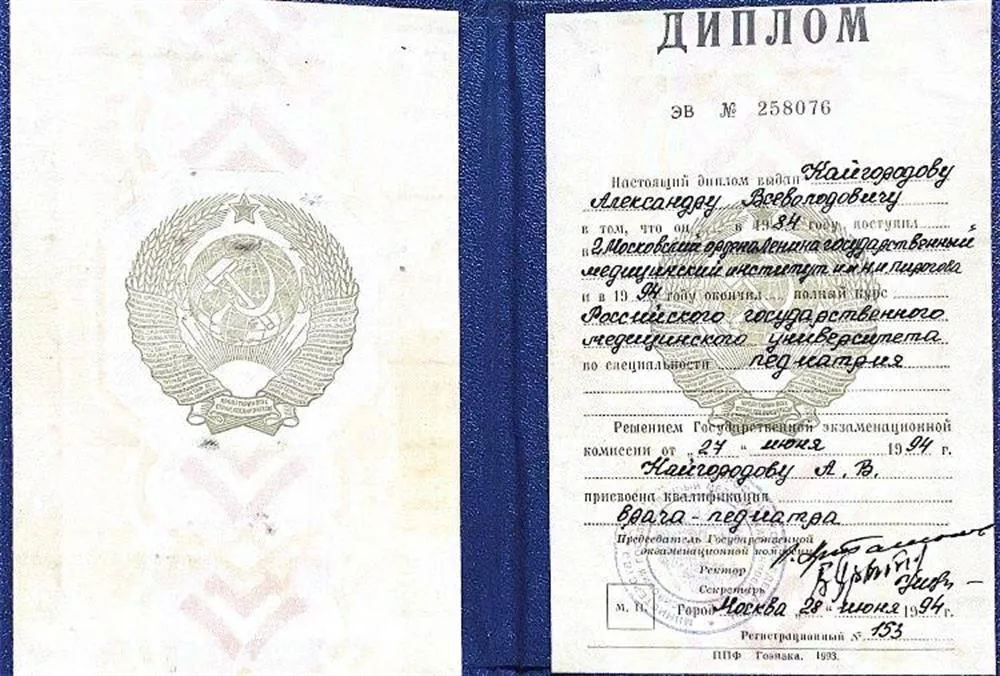 ДИПЛОМ
ЭВ № 258076
Настоящий диплом выдан Кайгородову
Александру Всеволодовичу
в том, что он в 1984 году поступил
в 2 Московский ордена Ленина государственный
медицинский институт им Н.И. Пирогова
и в 1994 году окончил полный курс
Российского государственного
медицинского университета
по специальности педиатрия
Решением Государственной экзаменационной
комиссии от „27“ июня 1994 г.
Кайгородову А. В.
присвоена квалификация
врача-педиатра
Председатель Государственной
экзаменационной комиссии
Ректор
Секретарь
М. П. Город Москва „28“ июня 1994 г.
Регистрационный № 153
ППФ Гознака. 1993.